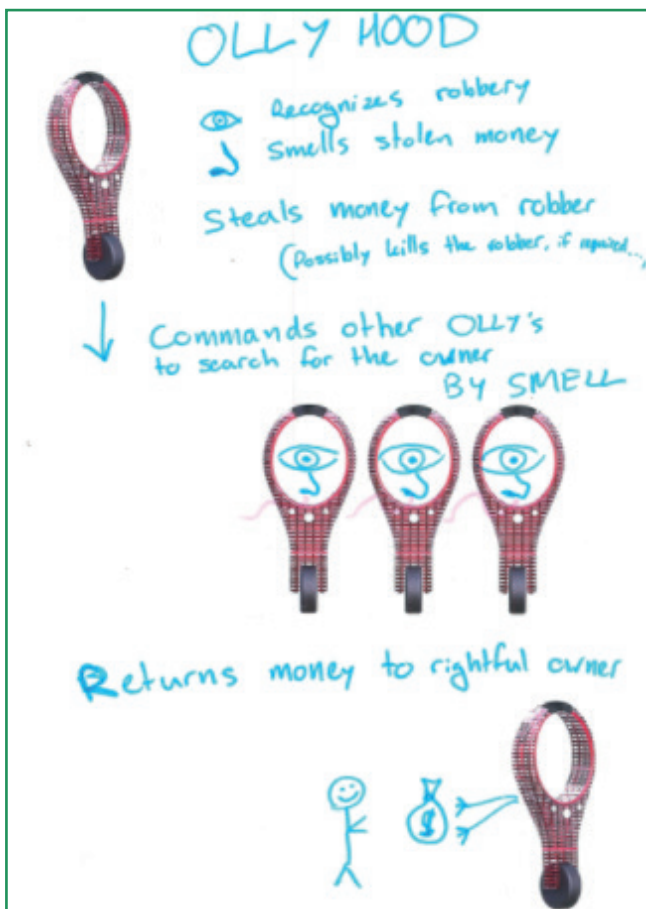 OLLY HOOD
Recognizes robbery
Smells stolen money
Steals money from robber
(Possibly kills the robber, if
Commands other OLLY's
to search for the owner
BY SMELL
Returns money to rightful owner
$